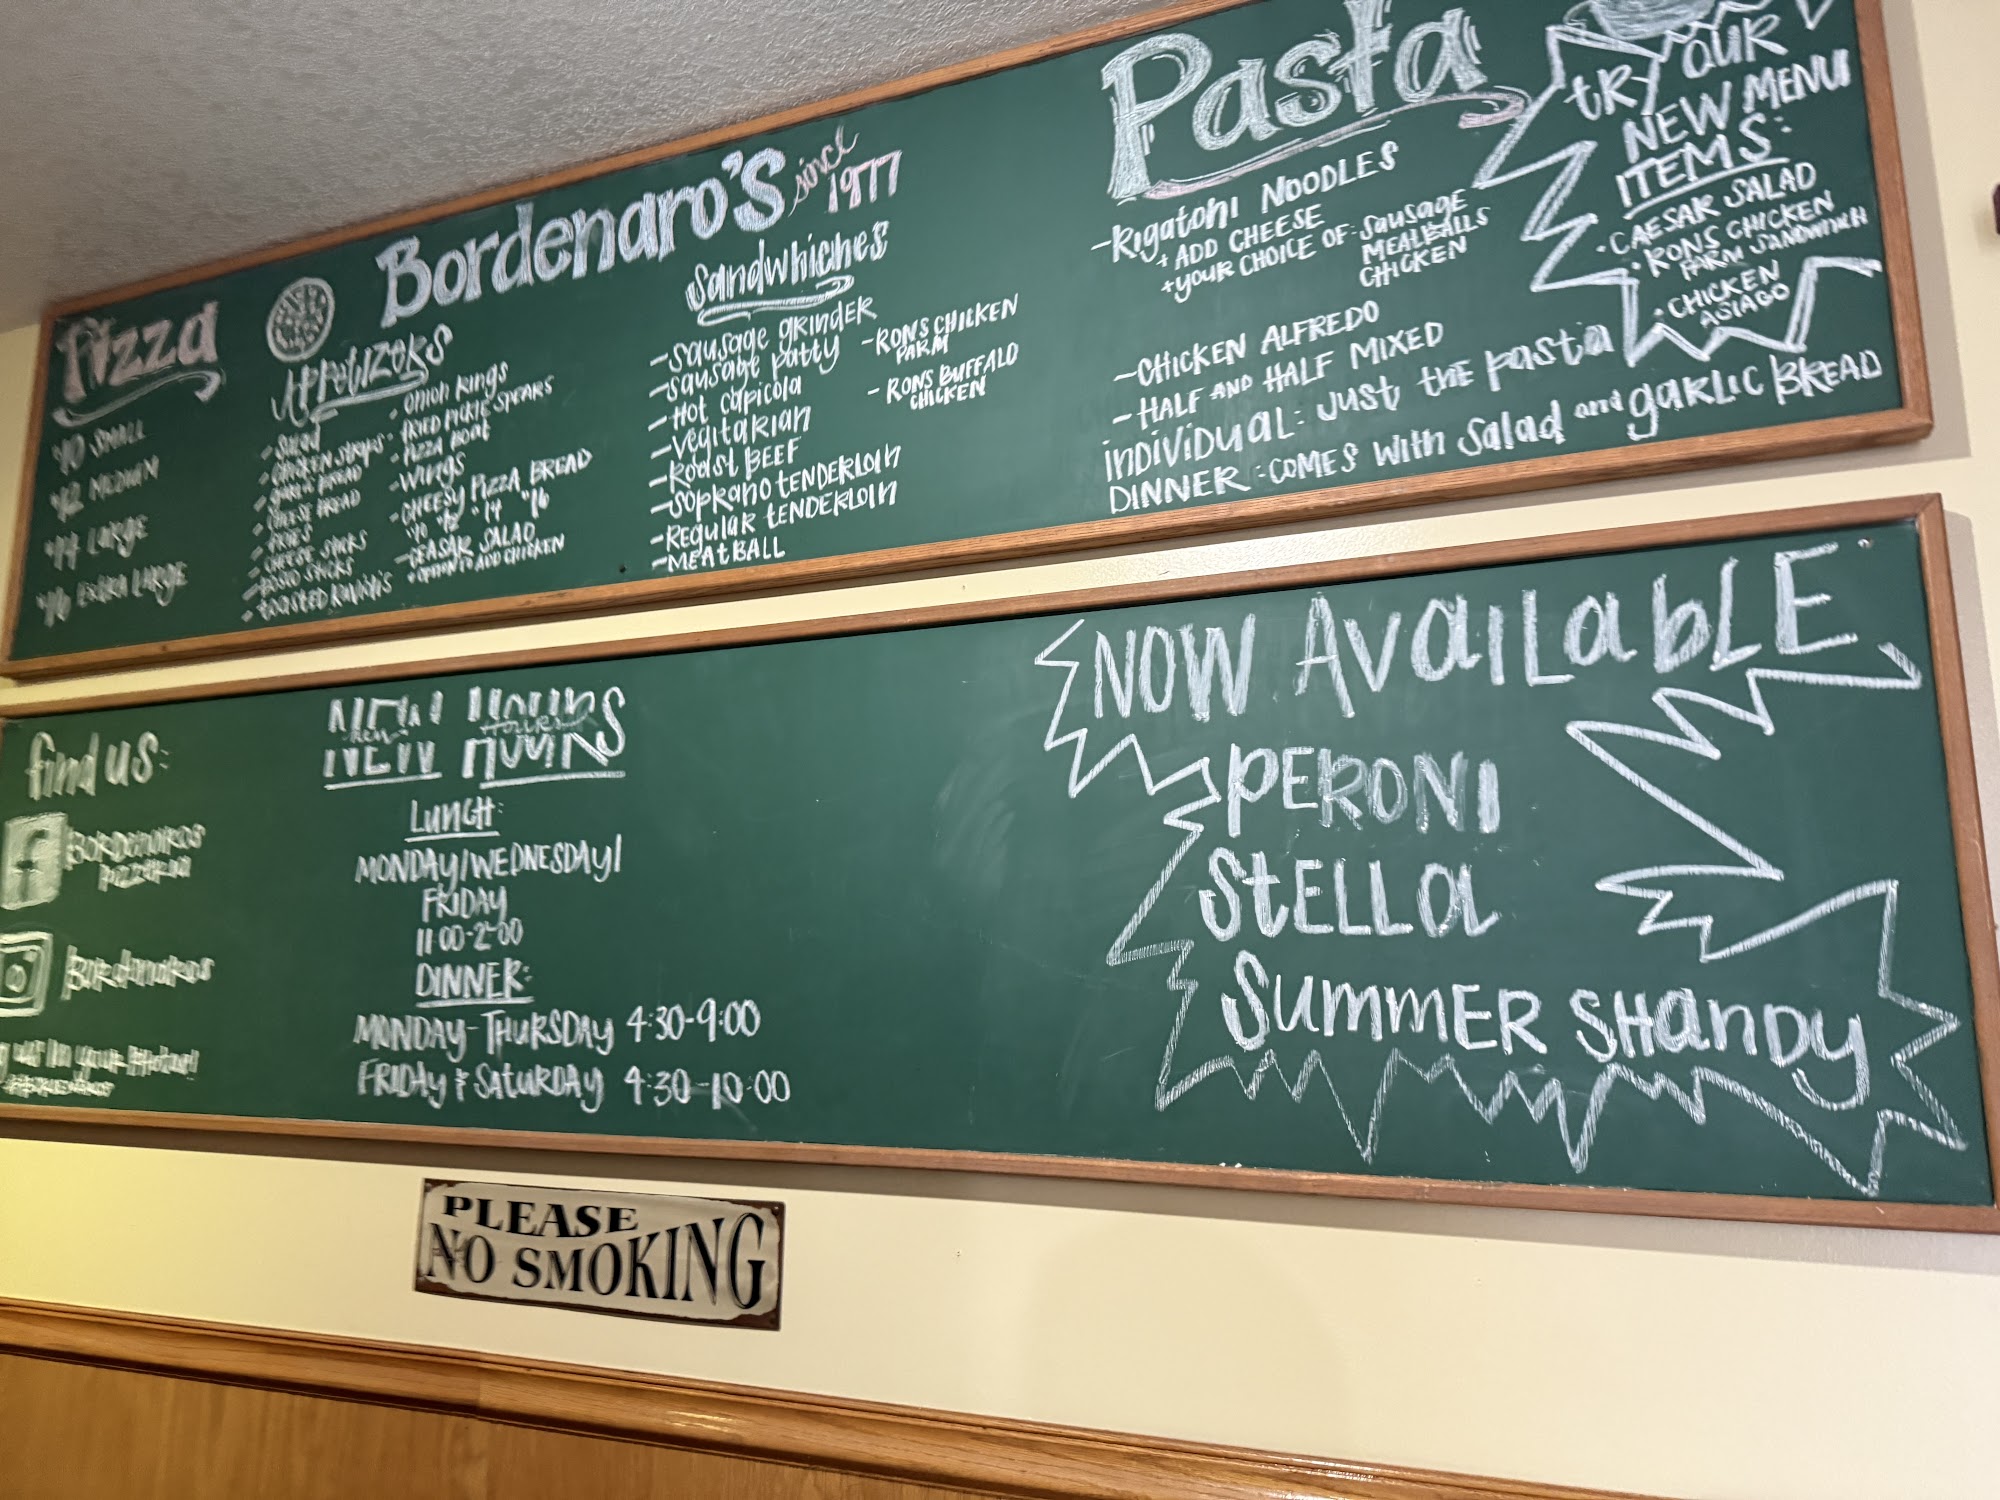 Pizza
$10 SMALL
$12 MEDIUM
$14 LARGE
$16 EXTRA LARGE
Bordenaro'S
since
1977
Appetizers
- Salad
- CHICKEN STRIPS
- GARLIC BREAD
- CHEESE BREAD
- FRIES
- CHEESE STICKS
- POTATO STICKS
- toasted Raviolis
- ONION RINGS
- FRIED PICKLE SPEARS
- PIZZA BOAT
- WINGS
- CHEESY PIZZA BREAD
$10 $12 $14 $16
- CEASAR SALAD
+ OPTION TO ADD CHICKEN
Sandwhiches
- Sausage GRINDER
- Sausage Patty
- Hot capicola
- Vegitarian
- Roast BEEF
- Soprano TENDERLOIN
- Regular TENDERLOIN
- MEATBALL
- RONS CHICKEN
PARM
- RONS BUFFALO
CHICKEN
Pasta
- Rigatoni NOODLES
+ ADD CHEESE
+ YOUR CHOICE OF: Sausage
MEALBALLS
CHICKEN
- CHICKEN ALFREDO
- HALF AND HALF MIXED
individual: Just the pasta
DINNER: COMES with Salad and garlic BREAD
tRY OUR
NEW MENU
ITEMS:
• CAESAR SALAD
• RONS CHICKEN
PARM SANDWICH
• CHICKEN
ASIAGO
find us:
BORDENAROS
PIZZERIA
Bordenaros
us in your photos!
NEW HOURS
LUNCH:
MONDAY/WEDNESDAY/
FRIDAY
11:00-2:00
DINNER:
MONDAY-THURSDAY 4:30-9:00
FRIDAY & SATURDAY 4:30-10:00
NOW AVAilablE
PERONI
StELLa
SummER SHanDy
PLEASE
NO SMOKING